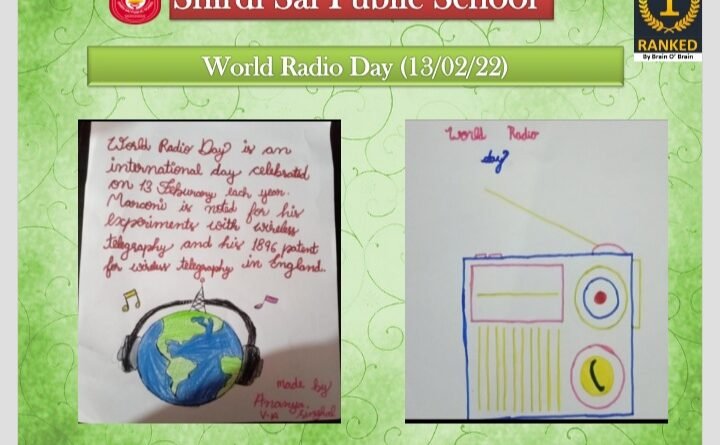 Shirdi Sai Public School
1
RANKED
By Brain O' Brain
World Radio Day (13/02/22)
World Radio Day is an
international day celebrated
on 13 Feburary each year.
Marconi is noted for his
experiments with wireless
telegraphy and his 1896 patent
for wireless telegraphy in England.
made by
Ananya
V-A Singhal
World Radio
day